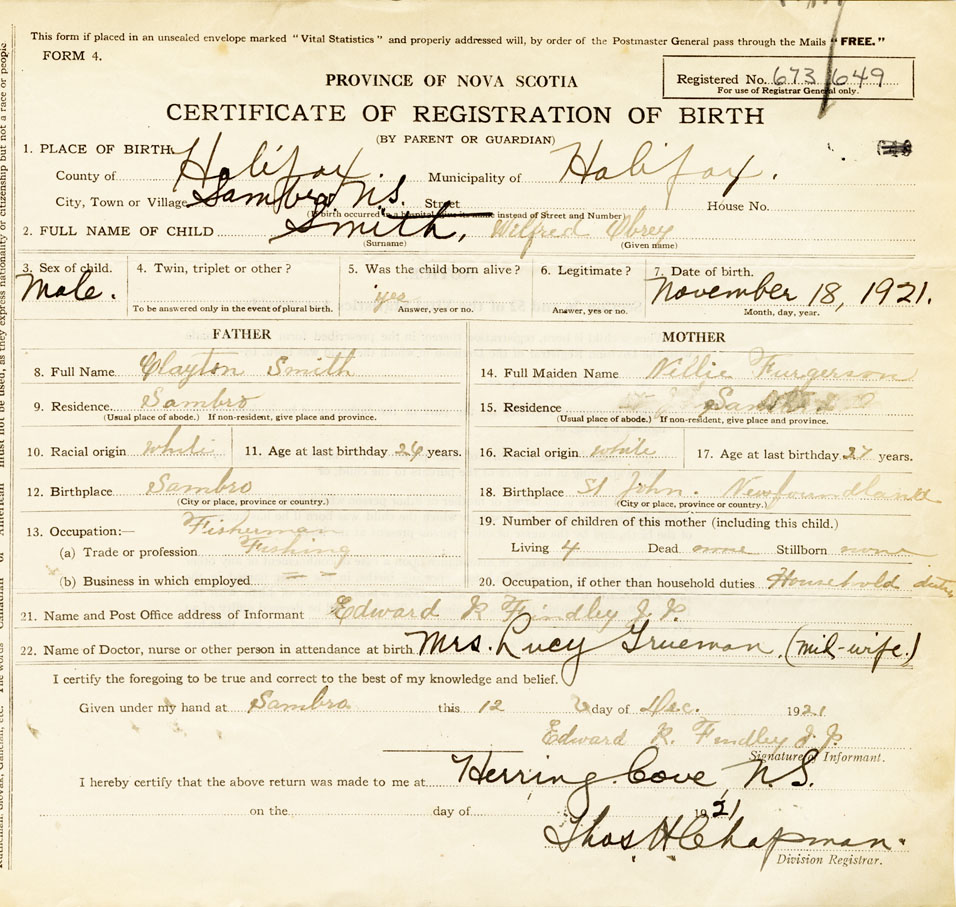 This form if placed in an unsealed envelope marked "Vital Statistics" and properly addressed will, by order of the Postmaster General pass through the Mails "FREE."
FORM 4.
PROVINCE OF NOVA SCOTIA
Registered No. 673 649
For use of Registrar General only.
CERTIFICATE OF REGISTRATION OF BIRTH
(BY PARENT OR GUARDIAN)
1. PLACE OF BIRTH
County of Halifax. Municipality of Halifax.
City, Town or Village Sambro N.S. Street House No.
(If birth occurred in a hospital give its name instead of Street and Number)
2. FULL NAME OF CHILD Smith, Wilfred Obrey
(Surname) (Given name)
3. Sex of child. 4. Twin, triplet or other? 5. Was the child born alive? 6. Legitimate? 7. Date of birth.
Male. yes November 18, 1921.
To be answered only in the event of plural birth. Answer, yes or no. Answer, yes or no. Month, day, year.
FATHER MOTHER
8. Full Name Clayton Smith 14. Full Maiden Name Nillie Furgerson
9. Residence Sambro 15. Residence Sambro
(Usual place of abode.) If non-resident, give place and province. (Usual place of abode.) If non-resident, give place and province.
10. Racial origin white 11. Age at last birthday 26 years. 16. Racial origin white 17. Age at last birthday 27 years.
12. Birthplace Sambro 18. Birthplace St John. Newfoundland
(City or place, province or country.) (City or place, province or country.)
13. Occupation:— Fisherman 19. Number of children of this mother (including this child.)
(a) Trade or profession Fishing Living 4 Dead none Stillborn none
(b) Business in which employed — — 20. Occupation, if other than household duties Household duties
21. Name and Post Office address of Informant Edward R Findley J.P.
22. Name of Doctor, nurse or other person in attendance at birth Mrs. Lucy Grueman, (mid-wife.)
I certify the foregoing to be true and correct to the best of my knowledge and belief.
Given under my hand at Sambro this 12 day of Dec. 1921
Edward R. Findley J.P
Signature of Informant.
I hereby certify that the above return was made to me at Herring Cove N.S.
on the day of 1921
Thos H Chapman.
Division Registrar.